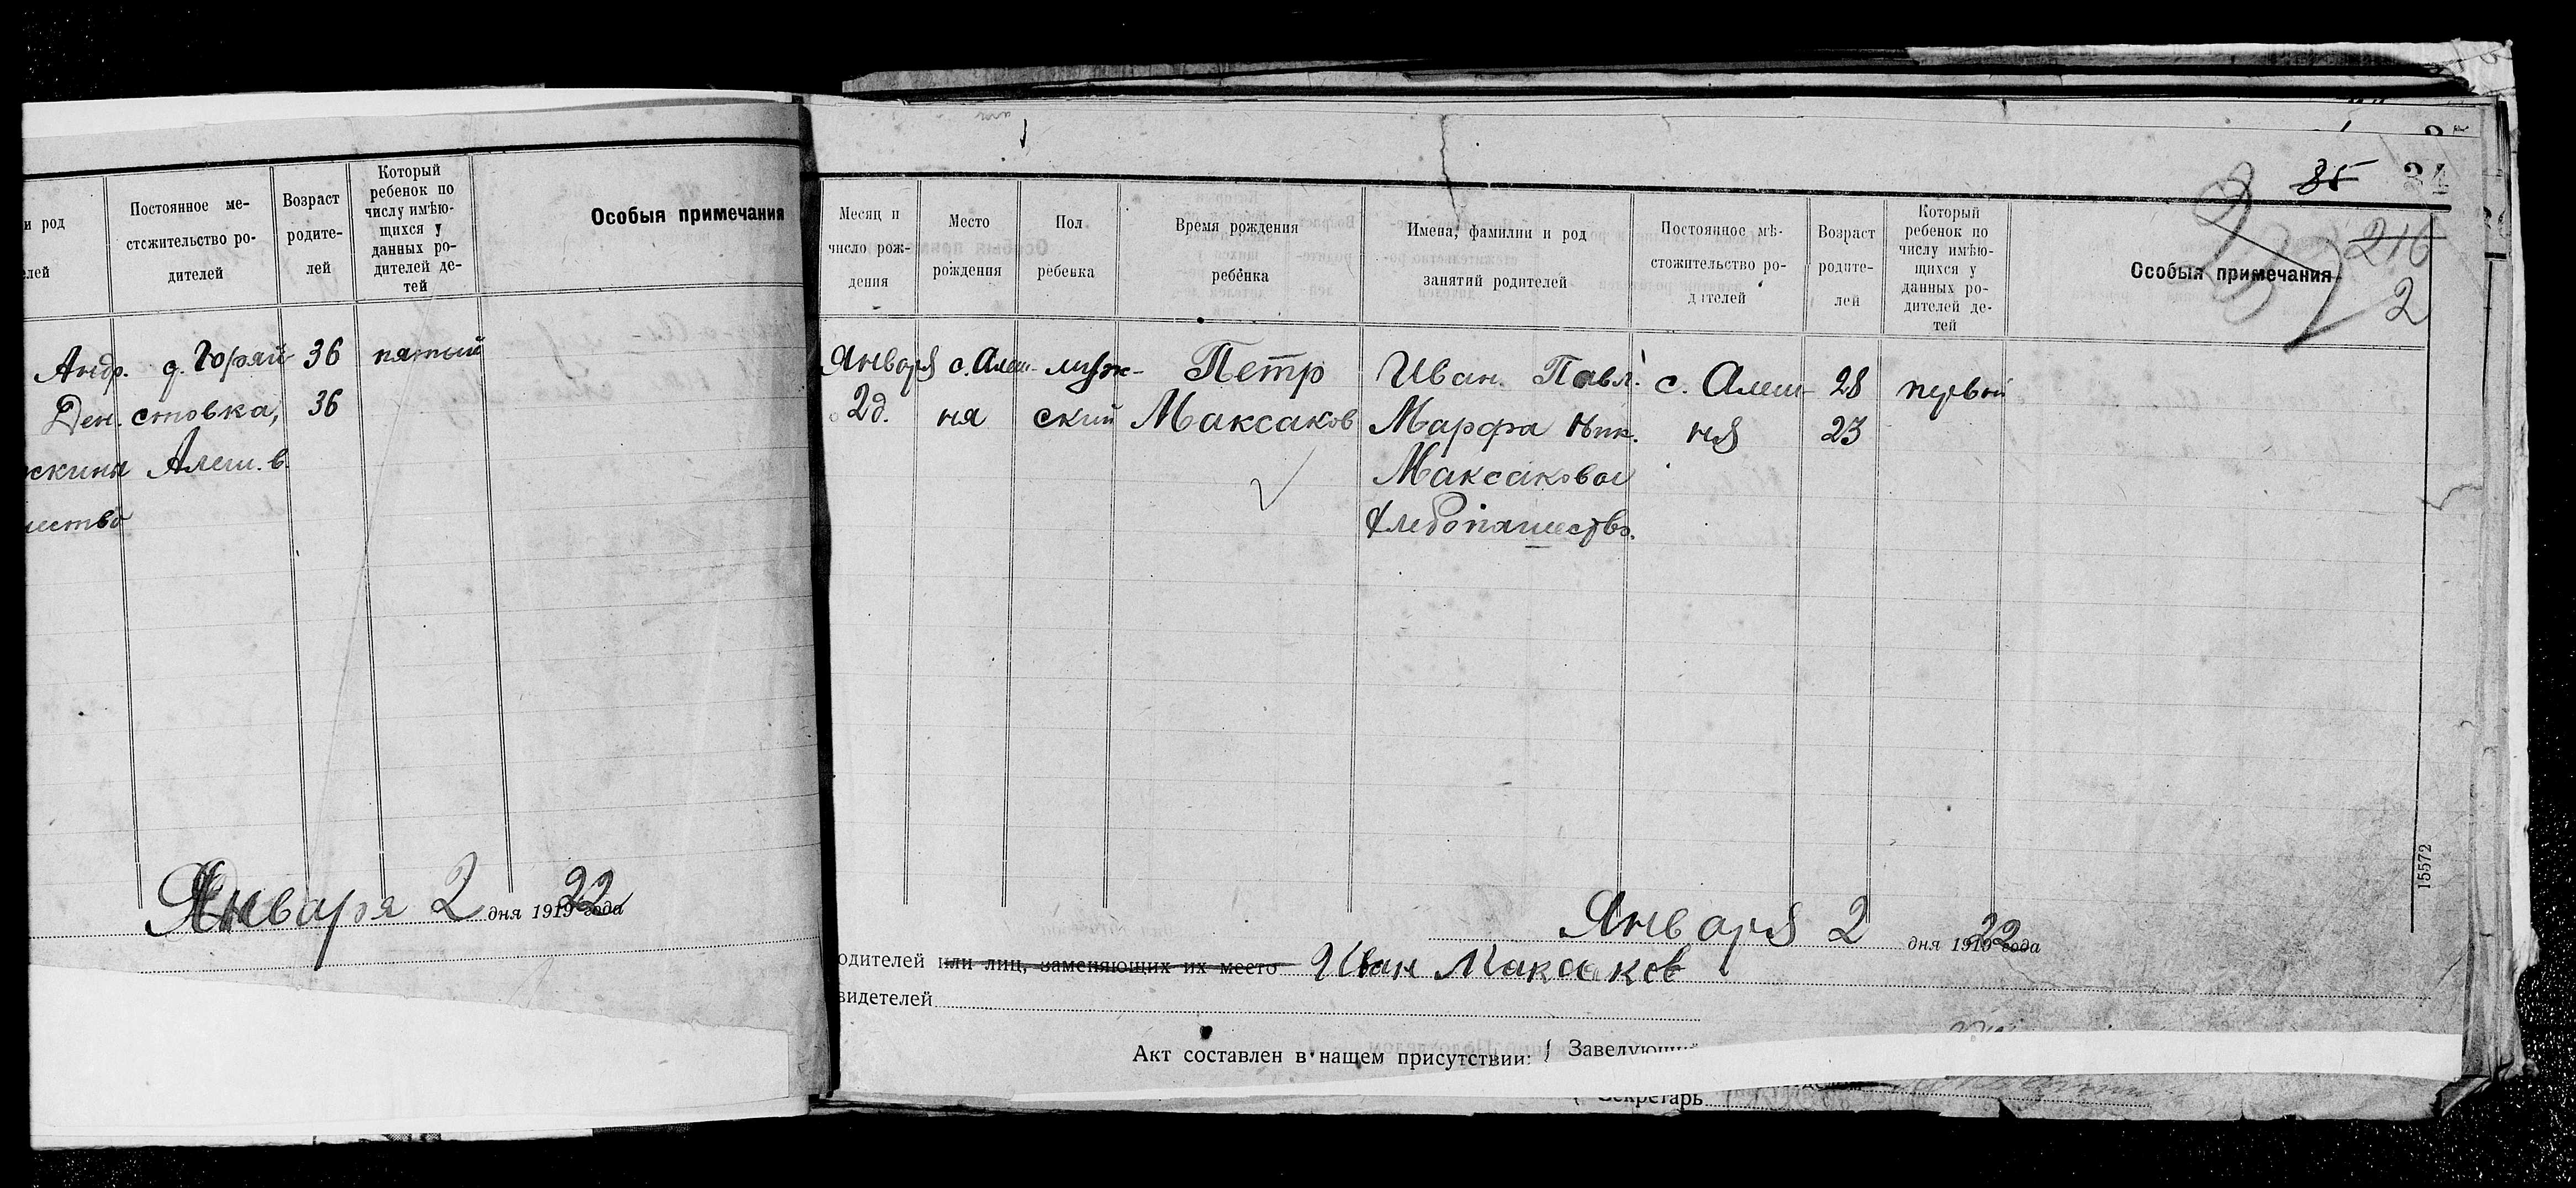 и род
елей
Постоянное ме-
стожительство ро-
дителей
Возраст
родите-
лей
Который
ребенок по
числу имѣю-
щихся у
данных ро-
дителей де-
тей
Особыя примечания
Андр. д. Горяй- 36 пятый
Ден. стовка, 36
скины Алеш. в.
шество
Января 2 дня 1919 22 года
35
34
216
2
Месяц и
число рож-
дения
Место
рождения
Пол
ребенка
Время рождения
ребенка
Имена, фамилии и род
занятий родителей
Постоянное мѣ-
стожительство ро-
дителей
Возраст
родите-
лей
Который
ребенок по
числу имѣю-
щихся у
данных ро-
дителей де-
тей
Особыя примечания
Января с. Алеш- муж- Петр Иван. Павл. с. Алеш- 28 первый
2д. ня ский Максаков Марфа Ник. ня 23
Максаковы
Хлебопашество.
15572
Января 2 дня 1919 22 года
одителей или лиц, заменяющих их место Иван Максаков
видетелей
Акт составлен в нашем присутствии: Заведующий
Секретарь